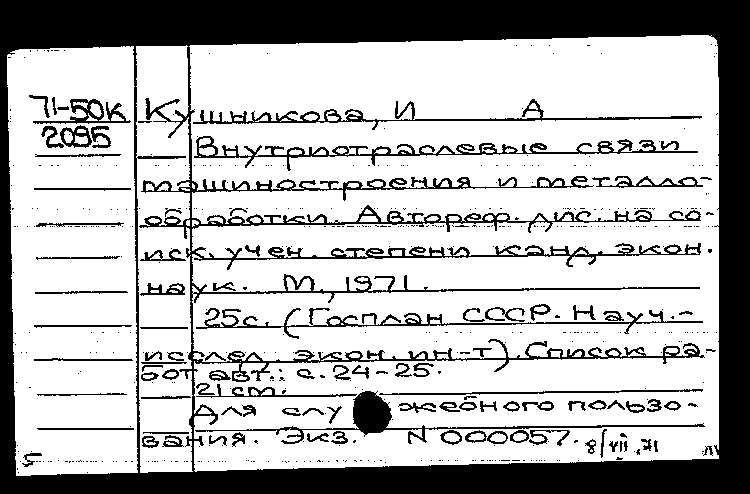 71-50К Кушникова, И А
2095
Внутриотраслевые связи
машиностроения и металло-
обработки. Автореф. дис. на со-
иск. учен. степени канд. экон.
наук. М., 1971.
25с. (Госплан СССР. Науч.-
исслед. экон. ин-т). Список ра-
бот авт.: с. 24-25.
21 cm.
Для служебного пользо-
вания. Экз. N 000057. 8/VII.71